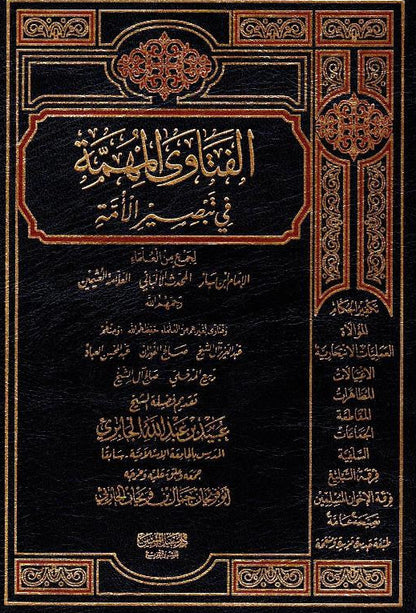 الفتاوى المهمة
في تبصير الأمة
لجمع من العلماء
الإمام ابن باز المحدث الألباني العلامة العثيمين
رحمهم الله
وفتاوى لغيرهم من العلماء حفظهم الله ومنهم
عبدالعزيز آل الشيخ صالح الفوزان عبدالمحسن العباد
ربيع المدخلي صالح آل الشيخ
تقديم فضيلة الشيخ
عبيد بن عبد الله الجابري
المدرس بالجامعة الإسلامية سابقا
جمعه وعلق عليه وخرجه
أبو فريحان جمال بن فريحان الحارثي
تكفير الحكام
الموالاة
العمليات الانتحارية
الاغتيالات
المظاهرات
المقاطعة
الجماعات
السلفية
فرقة التبليغ
فرقة الإخوان المسلمين
نصيحة عامة
طبعة جديدة مزيدة ومنقحة